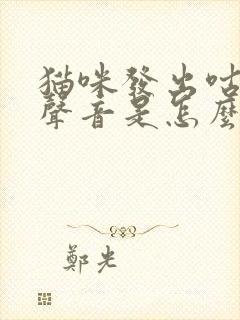 猫咪發出咕
聲音是怎麼
鄭光